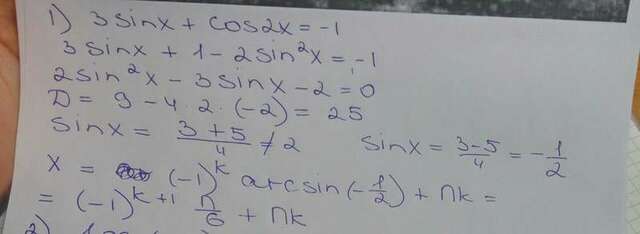 1) 3sinx + cos2x = -1
3sinx + 1 - 2sin²x = -1
2sin²x - 3sinx - 2 = 0
D = 9 - 4 · 2 · (-2) = 25
sinx = (3+5)/4 ≠ 2 sinx = (3-5)/4 = -1/2
x = (-1)^k arcsin(-1/2) + πk =
= (-1)^(k+1) π/6 + πk